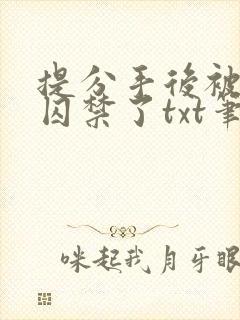 提分手後被
囚禁了txt筆
咪起我月牙眼